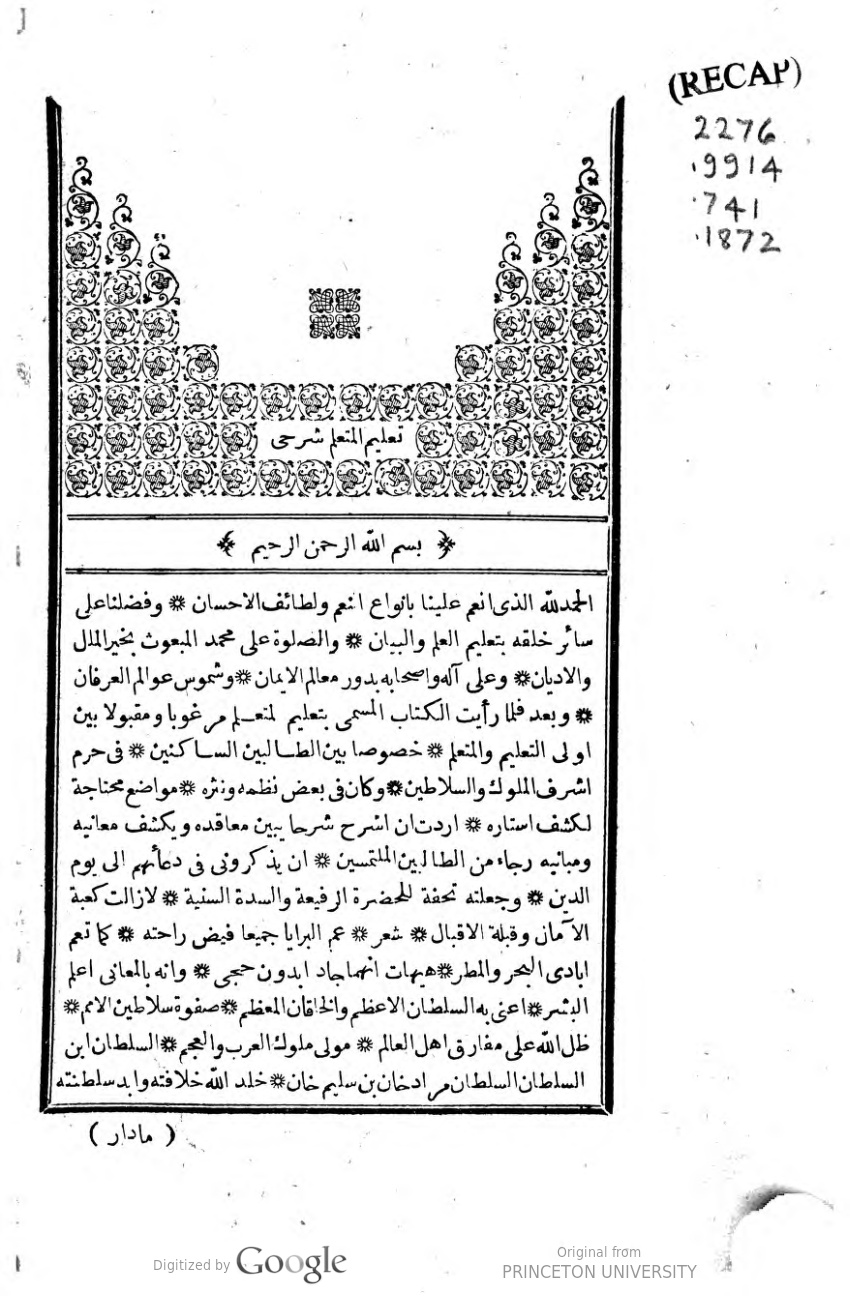 (RECAP)
2276
.9914
.741
.1872
تعليم المتعلم شرحى
﴿ بسم الله الرحمن الرحيم ﴾
الحمدلله الذى انعم علينا بانواع النعم ولطائف الاحسان ❊ وفضلنا على
سائر خلقه بتعليم العلم والبيان ❊ والصلوة على محمد المبعوث بخير الملل
والاديان ❊ وعلى آله واصحابه بدور معالم الايمان ❊ وشموس عوالم العرفان
❊ وبعد فلما رأيت الكتاب المسمى بتعليم المتعلم مرغوبا ومقبولا بين
اولى التعليم والمتعلم ❊ خصوصا بين الطالبين الساكنين ❊ فى حرم
اشرف الملوك والسلاطين ❊ وكان فى بعض نظمه ونثره ❊ مواضع محتاجة
لكشف استاره ❊ اردت ان اشرح شرحا يبين معاقده ويكشف معانيه
ومبانيه رجاء من الطالبين الملتمسين ❊ ان يذكرونى فى دعائهم الى يوم
الدين ❊ وجعلته تحفة للحضرة الرفيعة والسدة السنية ❊ لازالت كعبة
الآمال وقبلة الاقبال ❊ شعر ❊ عم البرايا جميعا فيض راحته ❊ كما تعم
ايادى البحر والمطر ❊ هيهات انهما جاد ابدون حجى ❊ وانه بالمعانى اعلم
البشر ❊ اعنى به السلطان الاعظم والخاقان المعظم ❊ صفوة سلاطين الامم ❊
ظل الله على مفارق اهل العالم ❊ مولى ملوك العرب والعجم ❊ السلطان ابن
السلطان السلطان مراد خان بن سليم خان ❊ خلد الله خلافته وابد سلطنته
( مادار )
Digitized by Google
Original from
PRINCETON UNIVERSITY